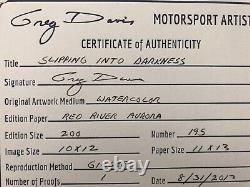 Greg Davis MOTORSPORT ARTIST
CERTIFICATE of AUTHENTICITY
Title SLIPPING INTO DARKNESS
Signature
Original Artwork Medium WATERCOLOR
Edition Paper RED RIVER AURORA
Edition Size 200 Number 195
Image Size 10x12 Paper Size 11x13
Reproduction Method
No. of Proofs 1 Date 8/31/2017